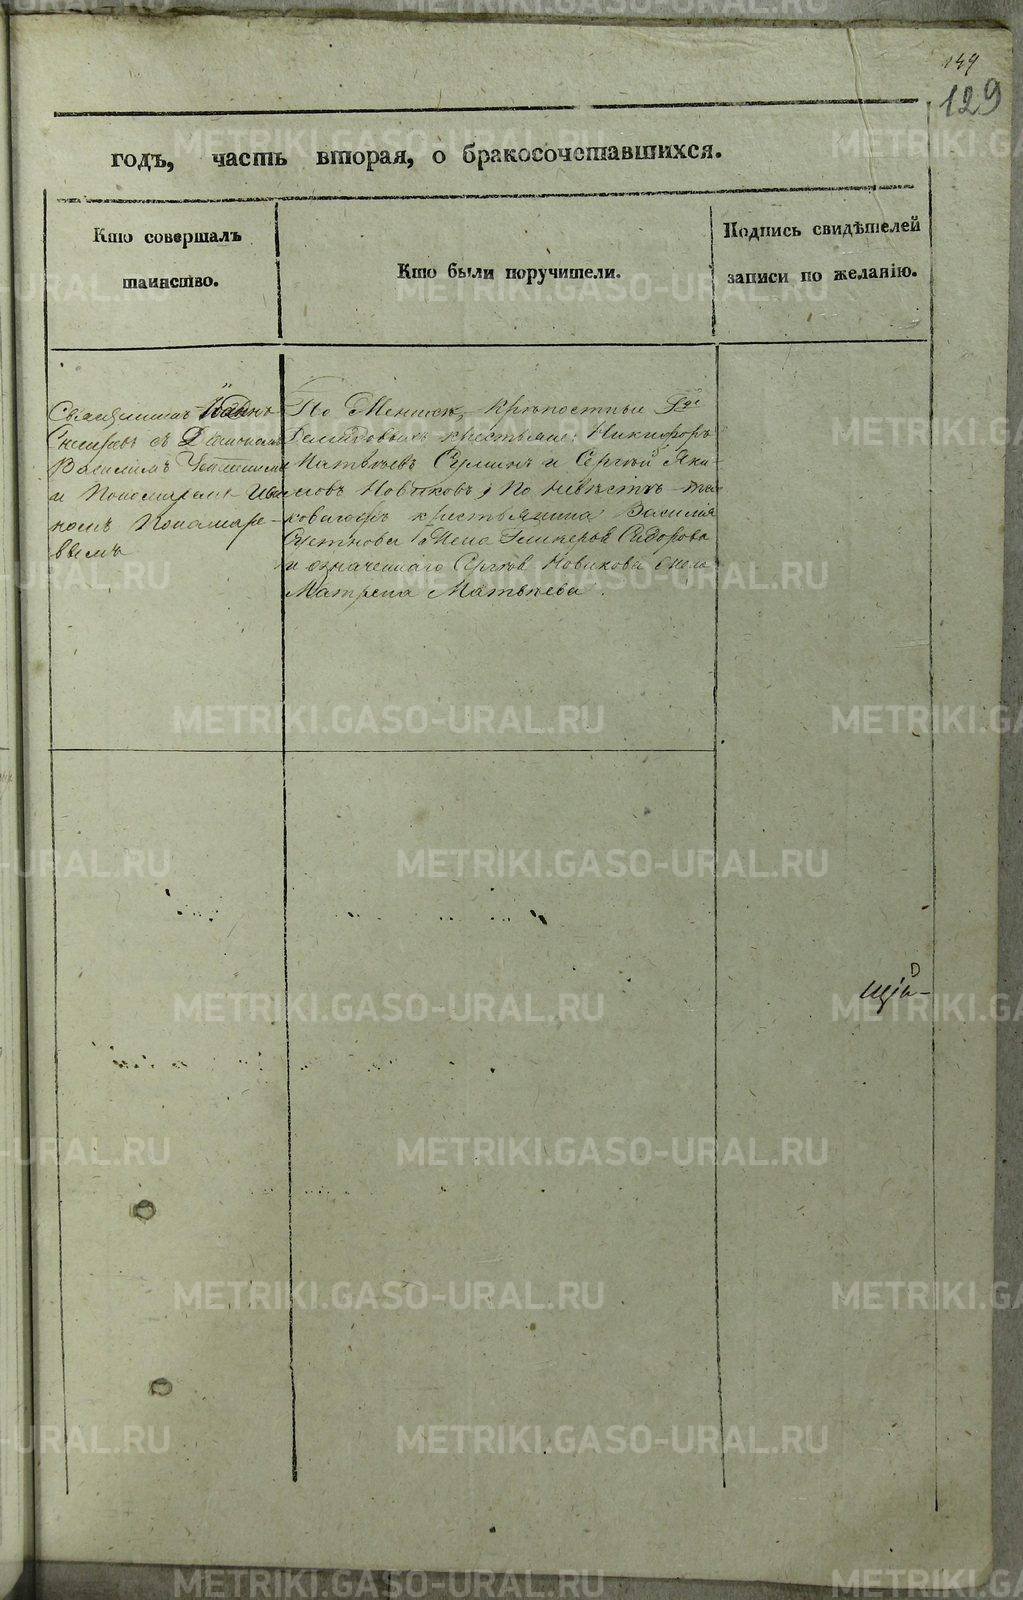 149
129
годъ, часть вторая, о бракосочетавшихся.
Кто совершалъ
таинство.
Кто были поручители.
Подпись свидѣтелей
записи по желанію.
Священникъ Іоаннъ
съ Діакономъ
Василіемъ
и Пономаремъ Ива-
номъ Пономаре-
вымъ
По Женихѣ, крѣпостные Гдъ
Демидовыхъ крестьяне: Никифоръ
Матвѣевъ Сулинъ и Сергѣй Яки-
мовъ Новиковъ; По невѣстѣ
крестьянина Василія
жена Гликерья Сидорова
и означеннаго Сергѣя Новикова жена
Матрена Матвѣева.
METRIKI.GASO-URAL.RU